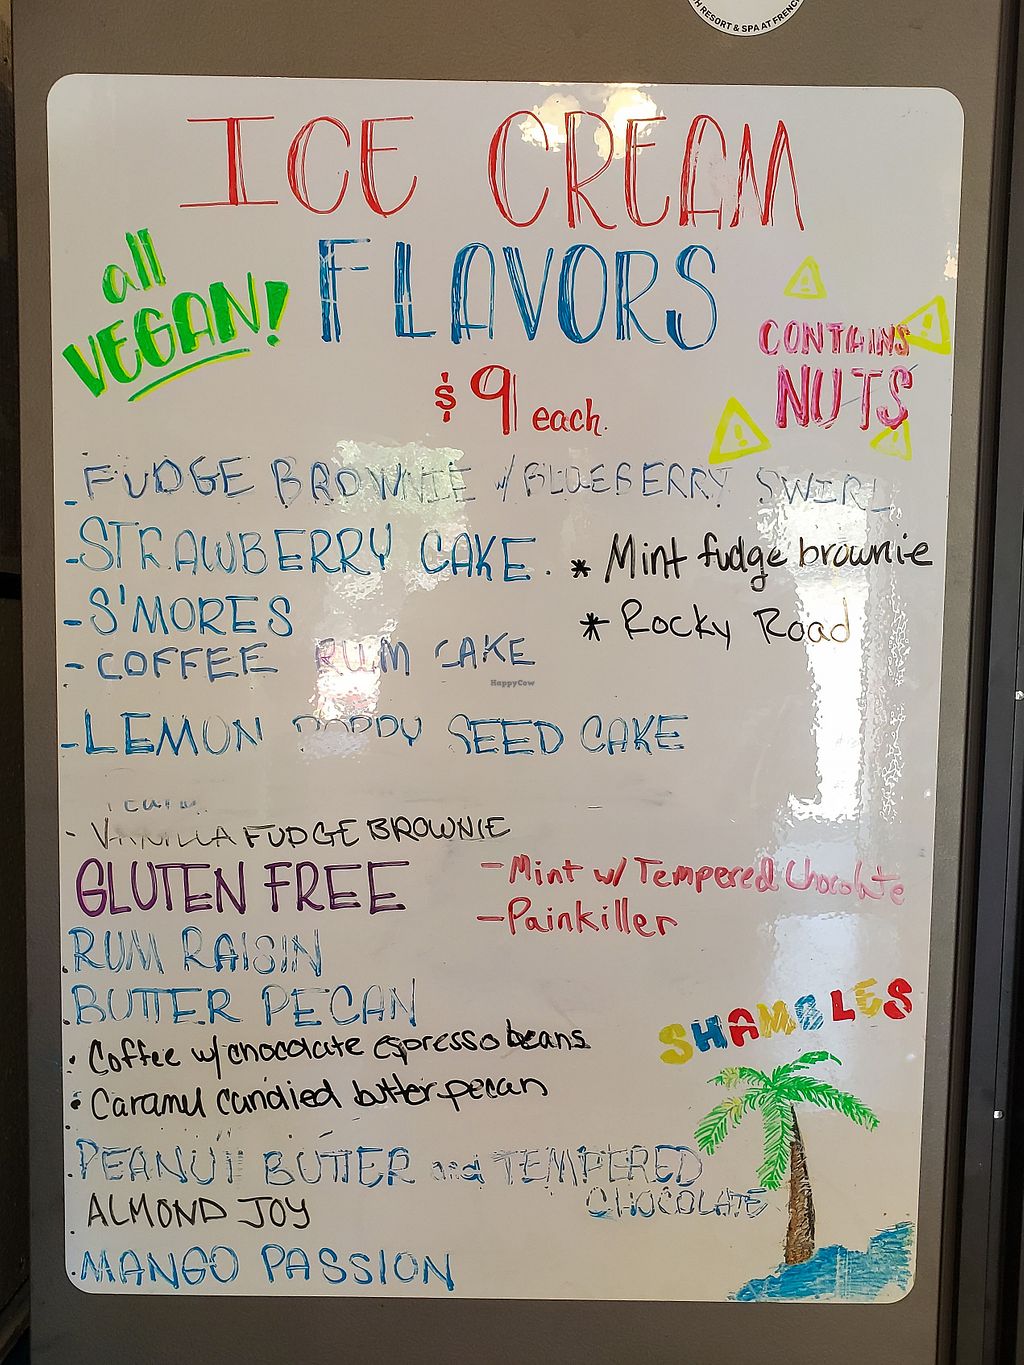 H RESORT & SPA AT FRENC
ICE CREAM
FLAVORS
all
VEGAN!
$9 each.
CONTAINS
NUTS
- FUDGE BROWNIE w/ BLUEBERRY SWIRL
- STRAWBERRY CAKE.
* Mint fudge brownie
- S'MORES
* Rocky Road
- COFFEE RUM CAKE
HappyCow
- LEMON POPPY SEED CAKE
- VANILLA FUDGE BROWNIE
GLUTEN FREE
- Mint w/ Tempered Chocolate
- Painkiller
. RUM RAISIN
. BUTTER PECAN
SHAMBLES
• Coffee w/ chocolate espresso beans
• Caramel candied butter pecan
. PEANUT BUTTER and TEMPERED
CHOCOLATE
. ALMOND JOY
. MANGO PASSION